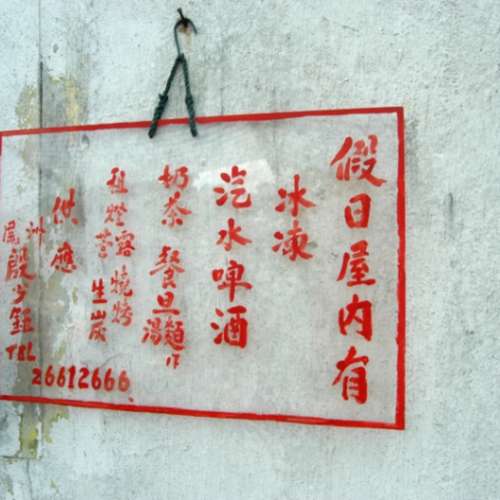 假日屋內有
冰凍
汽水啤酒
奶茶 餐旦麵湯
租燈 露營 燒烤 生炭
供應
洲尾 殷少
TEL 26612666